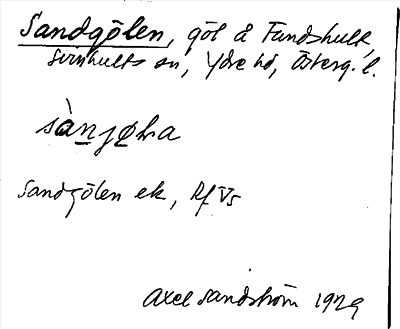 Sandgölen, göl å Fundshult,
Svinhults sn, Ydre hd, Österg. l.
sànjøla
Sandgölen ek, Rf Vs
Axel Sandström 1929